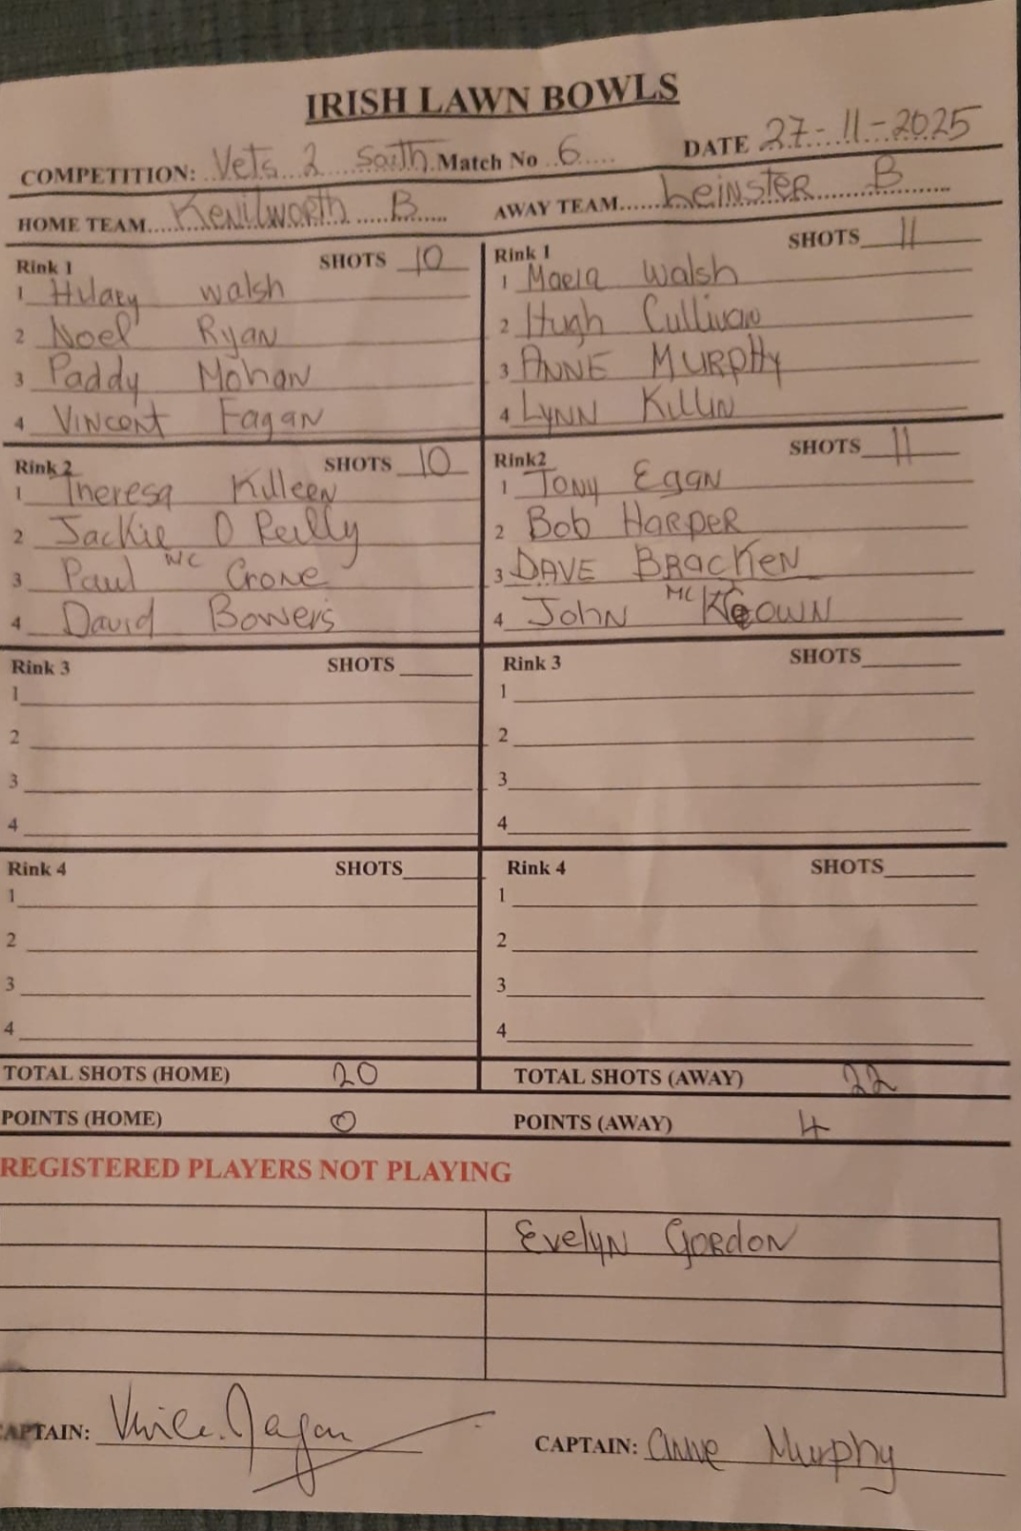 IRISH LAWN BOWLS
COMPETITION: Vets 2 South Match No 6 DATE 27-11-2025
HOME TEAM Kenilworth B AWAY TEAM Leinster B
Rink 1 SHOTS 10
1 Hilary Walsh
2 Noel Ryan
3 Paddy Mohan
4 Vincent Fagan
Rink 1 SHOTS 11
1 Maeia Walsh
2 Hugh Cullivan
3 ANNE MURPHY
4 LYNN Killin
Rink 2 SHOTS 10
1 Theresa Killeen
2 Jackie O Reilly
3 Paul Mc Crone
4 David Bowers
Rink2 SHOTS 11
1 Tony Egan
2 Bob HARPER
3 DAVE BRACKEN
4 John Mc Keown
Rink 3 SHOTS
1
2
3
4
Rink 3 SHOTS
1
2
3
4
Rink 4 SHOTS
1
2
3
4
Rink 4 SHOTS
1
2
3
4
TOTAL SHOTS (HOME) 20 TOTAL SHOTS (AWAY) 22
POINTS (HOME) 0 POINTS (AWAY) 4
REGISTERED PLAYERS NOT PLAYING
Evelyn Gordon
CAPTAIN: Fagan CAPTAIN: Anne Murphy